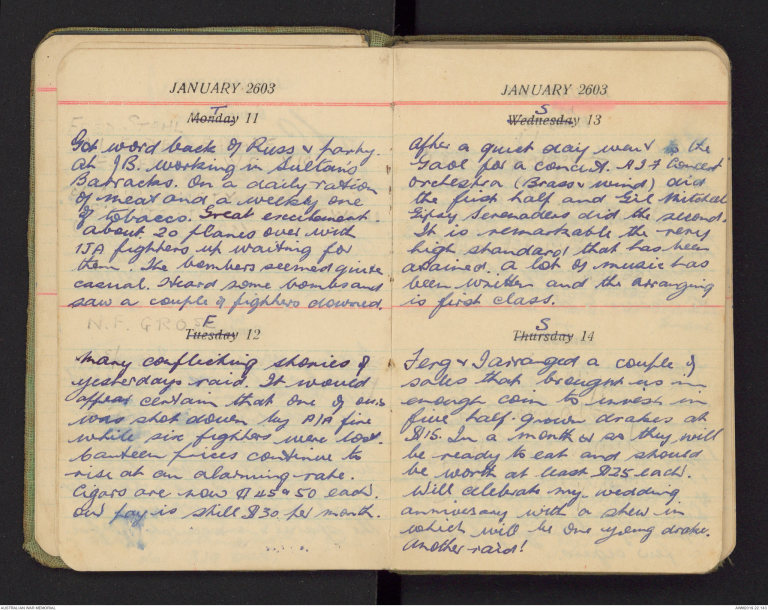 JANUARY 2603
T
Monday 11
Got word back of Russ & party.
at J.B. working in Sultan's
Barracks. On a daily ration
of meat and a weekly one
of tobacco. Great excitement.
About 20 planes over with
IJA fighters up waiting for
them. The bombers seemed quite
casual. Heard some bombs and
saw a couple of fighters downed.
N.F. GROSE
F
Tuesday 12
Many conflicting stories of
yesterdays raid. It would
appear certain that one of ours
was shot down by A/A fire
while six fighters were lost.
Canteen prices continue to
rise at an alarming rate.
Cigars are now $45 & 50 each.
our pay is still $30 per month.
JANUARY 2603
S
Wednesday 13
After a quiet day went to the
Gaol for a concert. AIF Concert
orchestra (Brass & wind) did
the first half and Gil Mitchel
Gipsy Serenaders did the second.
It is remarkable the very
high standard that has been
attained. A lot of music has
been written and the arranging
is first class.
S
Thursday 14
Ferg & I arranged a couple of
sales that brought us in
enough coin to invest in
five half-grown drakes at
$15. In a month or so they will
be ready to eat and should
be worth at least $25 each.
Will celebrate my wedding
anniversary with a stew in
which will be one young drake.
Another raid!
AUSTRALIAN WAR MEMORIAL